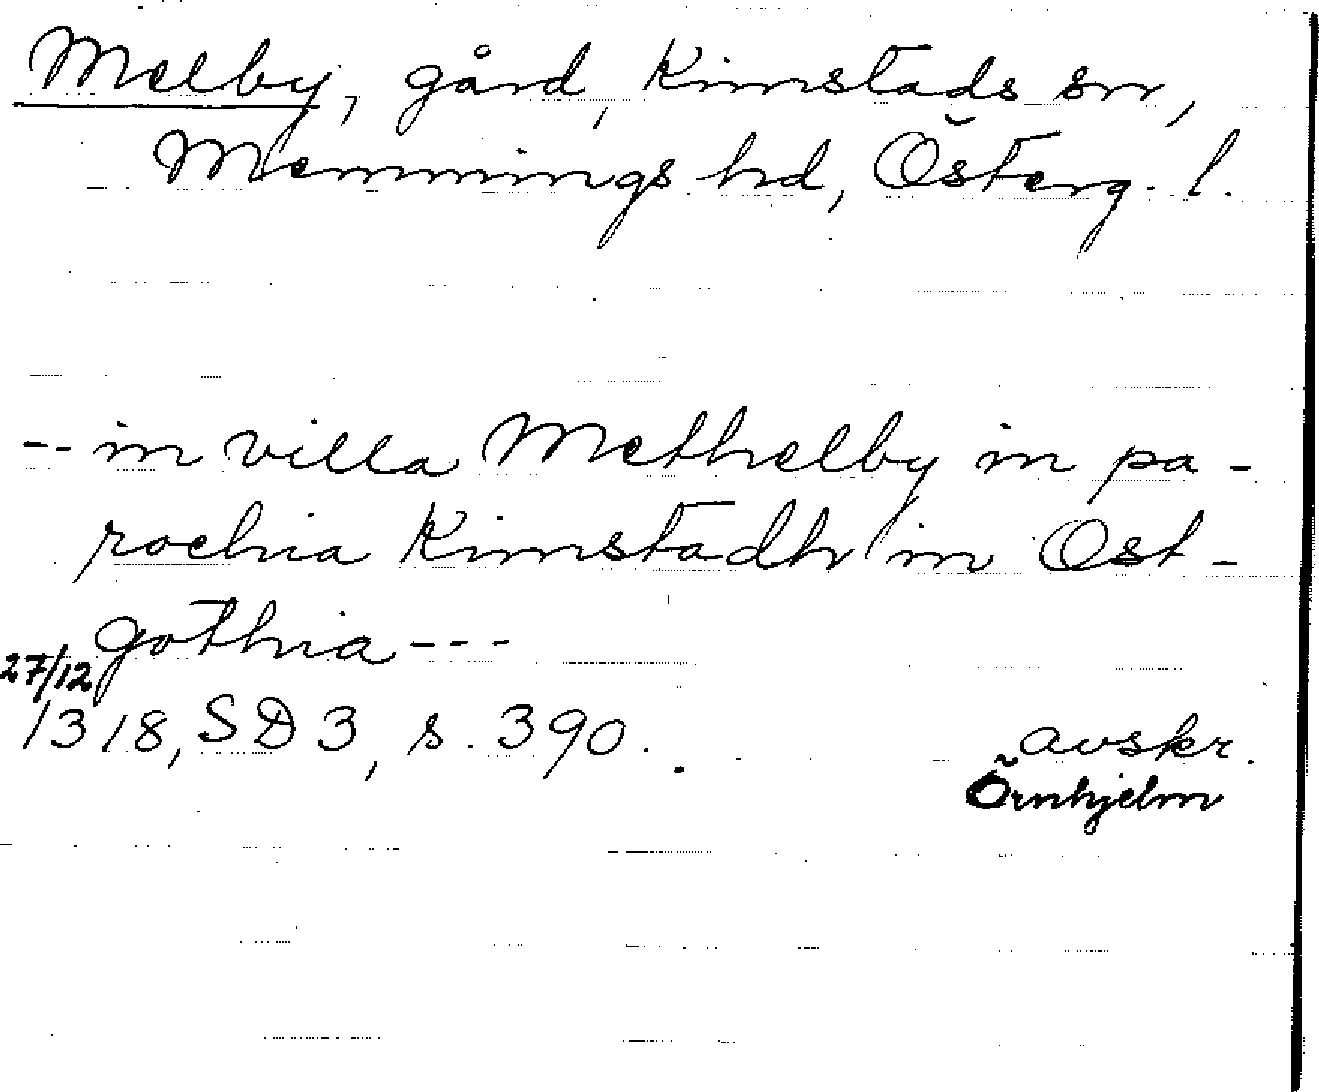 Melby, gård, Kimstads sn,
Memmings hd, Österg. l.
-- in villa Methelby in pa-
rochia Kimstadh in Ost-
gothia ---
27/12
1318, SD 3, s. 390.
avskr.
Örnhjelm